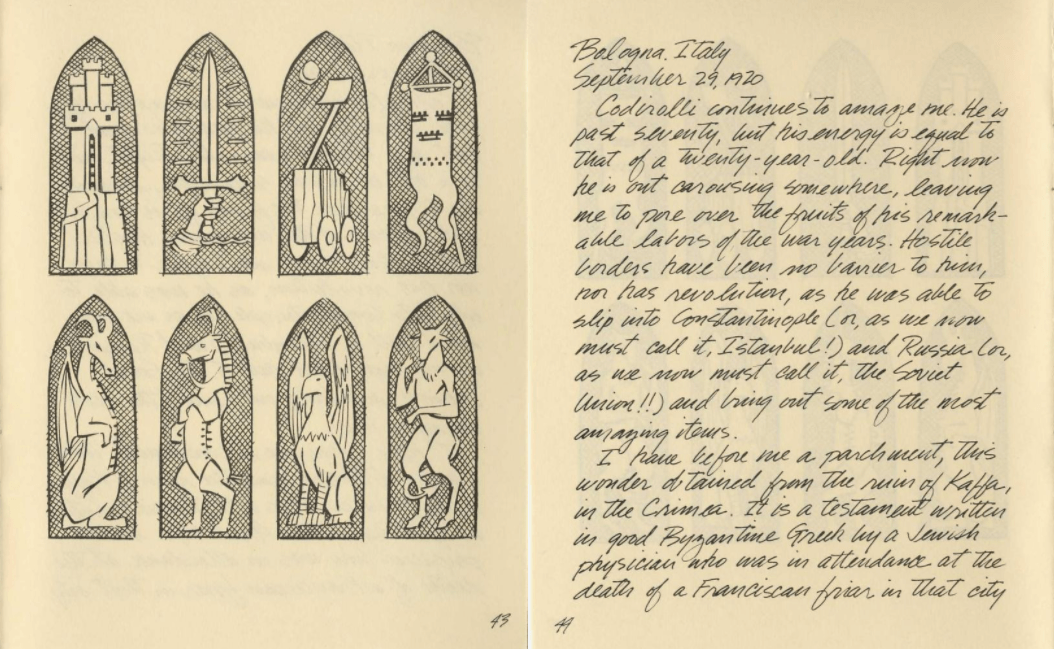 43
Bologna, Italy
September 29, 1920
Codirolli continues to amaze me. He is
past seventy, but his energy is equal to
that of a twenty-year-old. Right now
he is out carousing somewhere, leaving
me to pore over the fruits of his remark-
able labors of the war years. Hostile
borders have been no barrier to him,
nor has revolution, as he was able to
slip into Constantinople (or, as we now
must call it, Istanbul!) and Russia (or,
as we now must call it, the Soviet
Union!!) and bring out some of the most
amazing items.
I have before me a parchment, this
wonder obtained from the ruin of Kaffa,
in the Crimea. It is a testament written
in good Byzantine Greek by a Jewish
physician who was in attendance at the
death of a Franciscan friar in that city
44